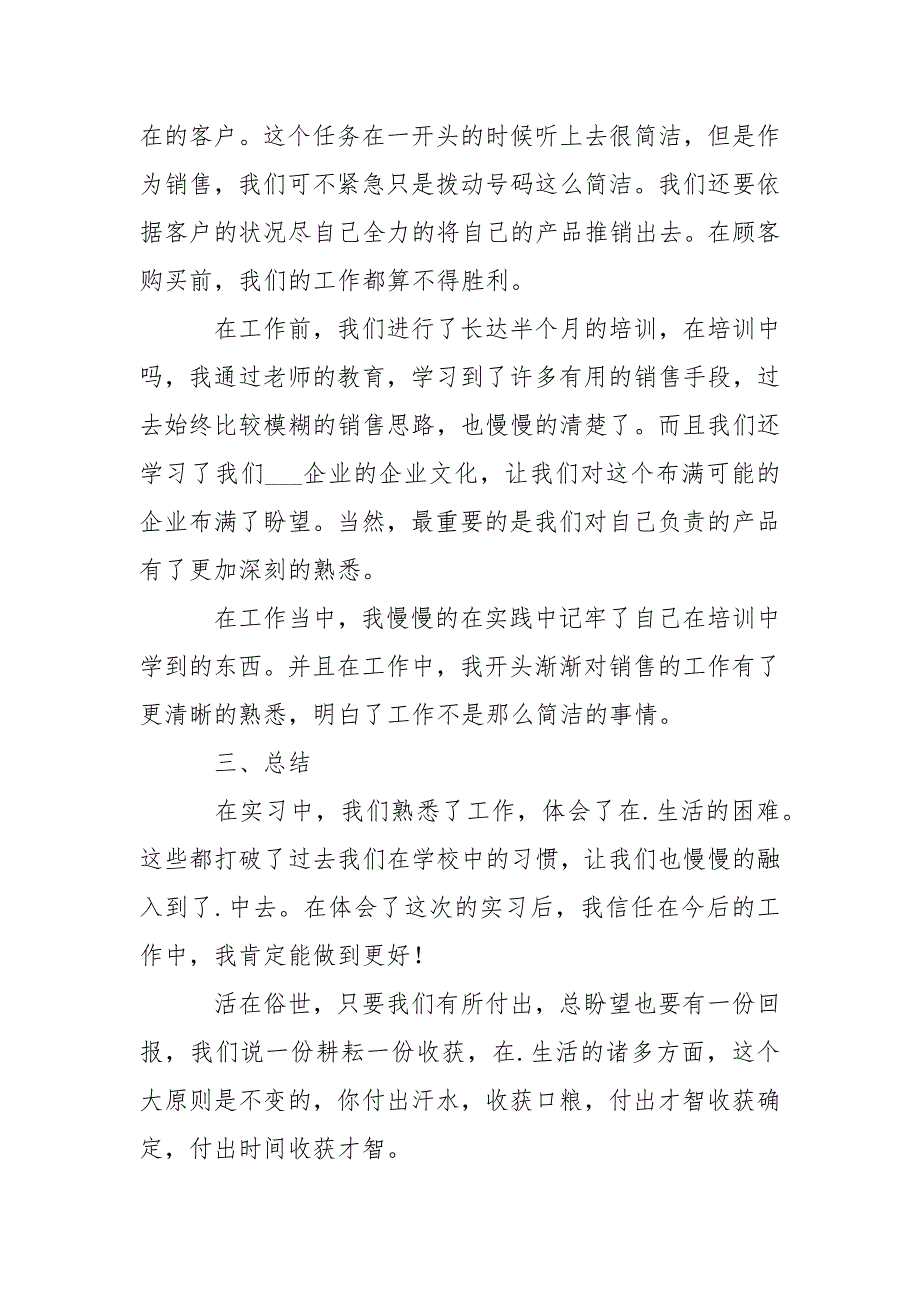 在的客户。这个任务在一开头的时候听上去很简洁，但是作
为销售，我们可不紧急只是拨动号码这么简洁。我们还要依
据客户的状况尽自己全力的将自己的产品推销出去。在顾客
购买前，我们的工作都算不得胜利。
在工作前，我们进行了长达半个月的培训，在培训中
吗，我通过老师的教育，学习到了许多有用的销售手段，过
去始终比较模糊的销售思路，也慢慢的清楚了。而且我们还
学习了我们___企业的企业文化，让我们对这个布满可能的
企业布满了盼望。当然，最重要的是我们对自己负责的产品
有了更加深刻的熟悉。
在工作当中，我慢慢的在实践中记牢了自己在培训中
学到的东西。并且在工作中，我开头渐渐对销售的工作有了
更清晰的熟悉，明白了工作不是那么简洁的事情。
三、总结
在实习中，我们熟悉了工作，体会了在.生活的困难。
这些都打破了过去我们在学校中的习惯，让我们也慢慢的融
入到了.中去。在体会了这次的实习后，我信任在今后的工
作中，我肯定能做到更好！
活在俗世，只要我们有所付出，总盼望也要有一份回
报，我们说一份耕耘一份收获，在.生活的诸多方面，这个
大原则是不变的，你付出汗水，收获口粮，付出才智收获确
定，付出时间收获才智。